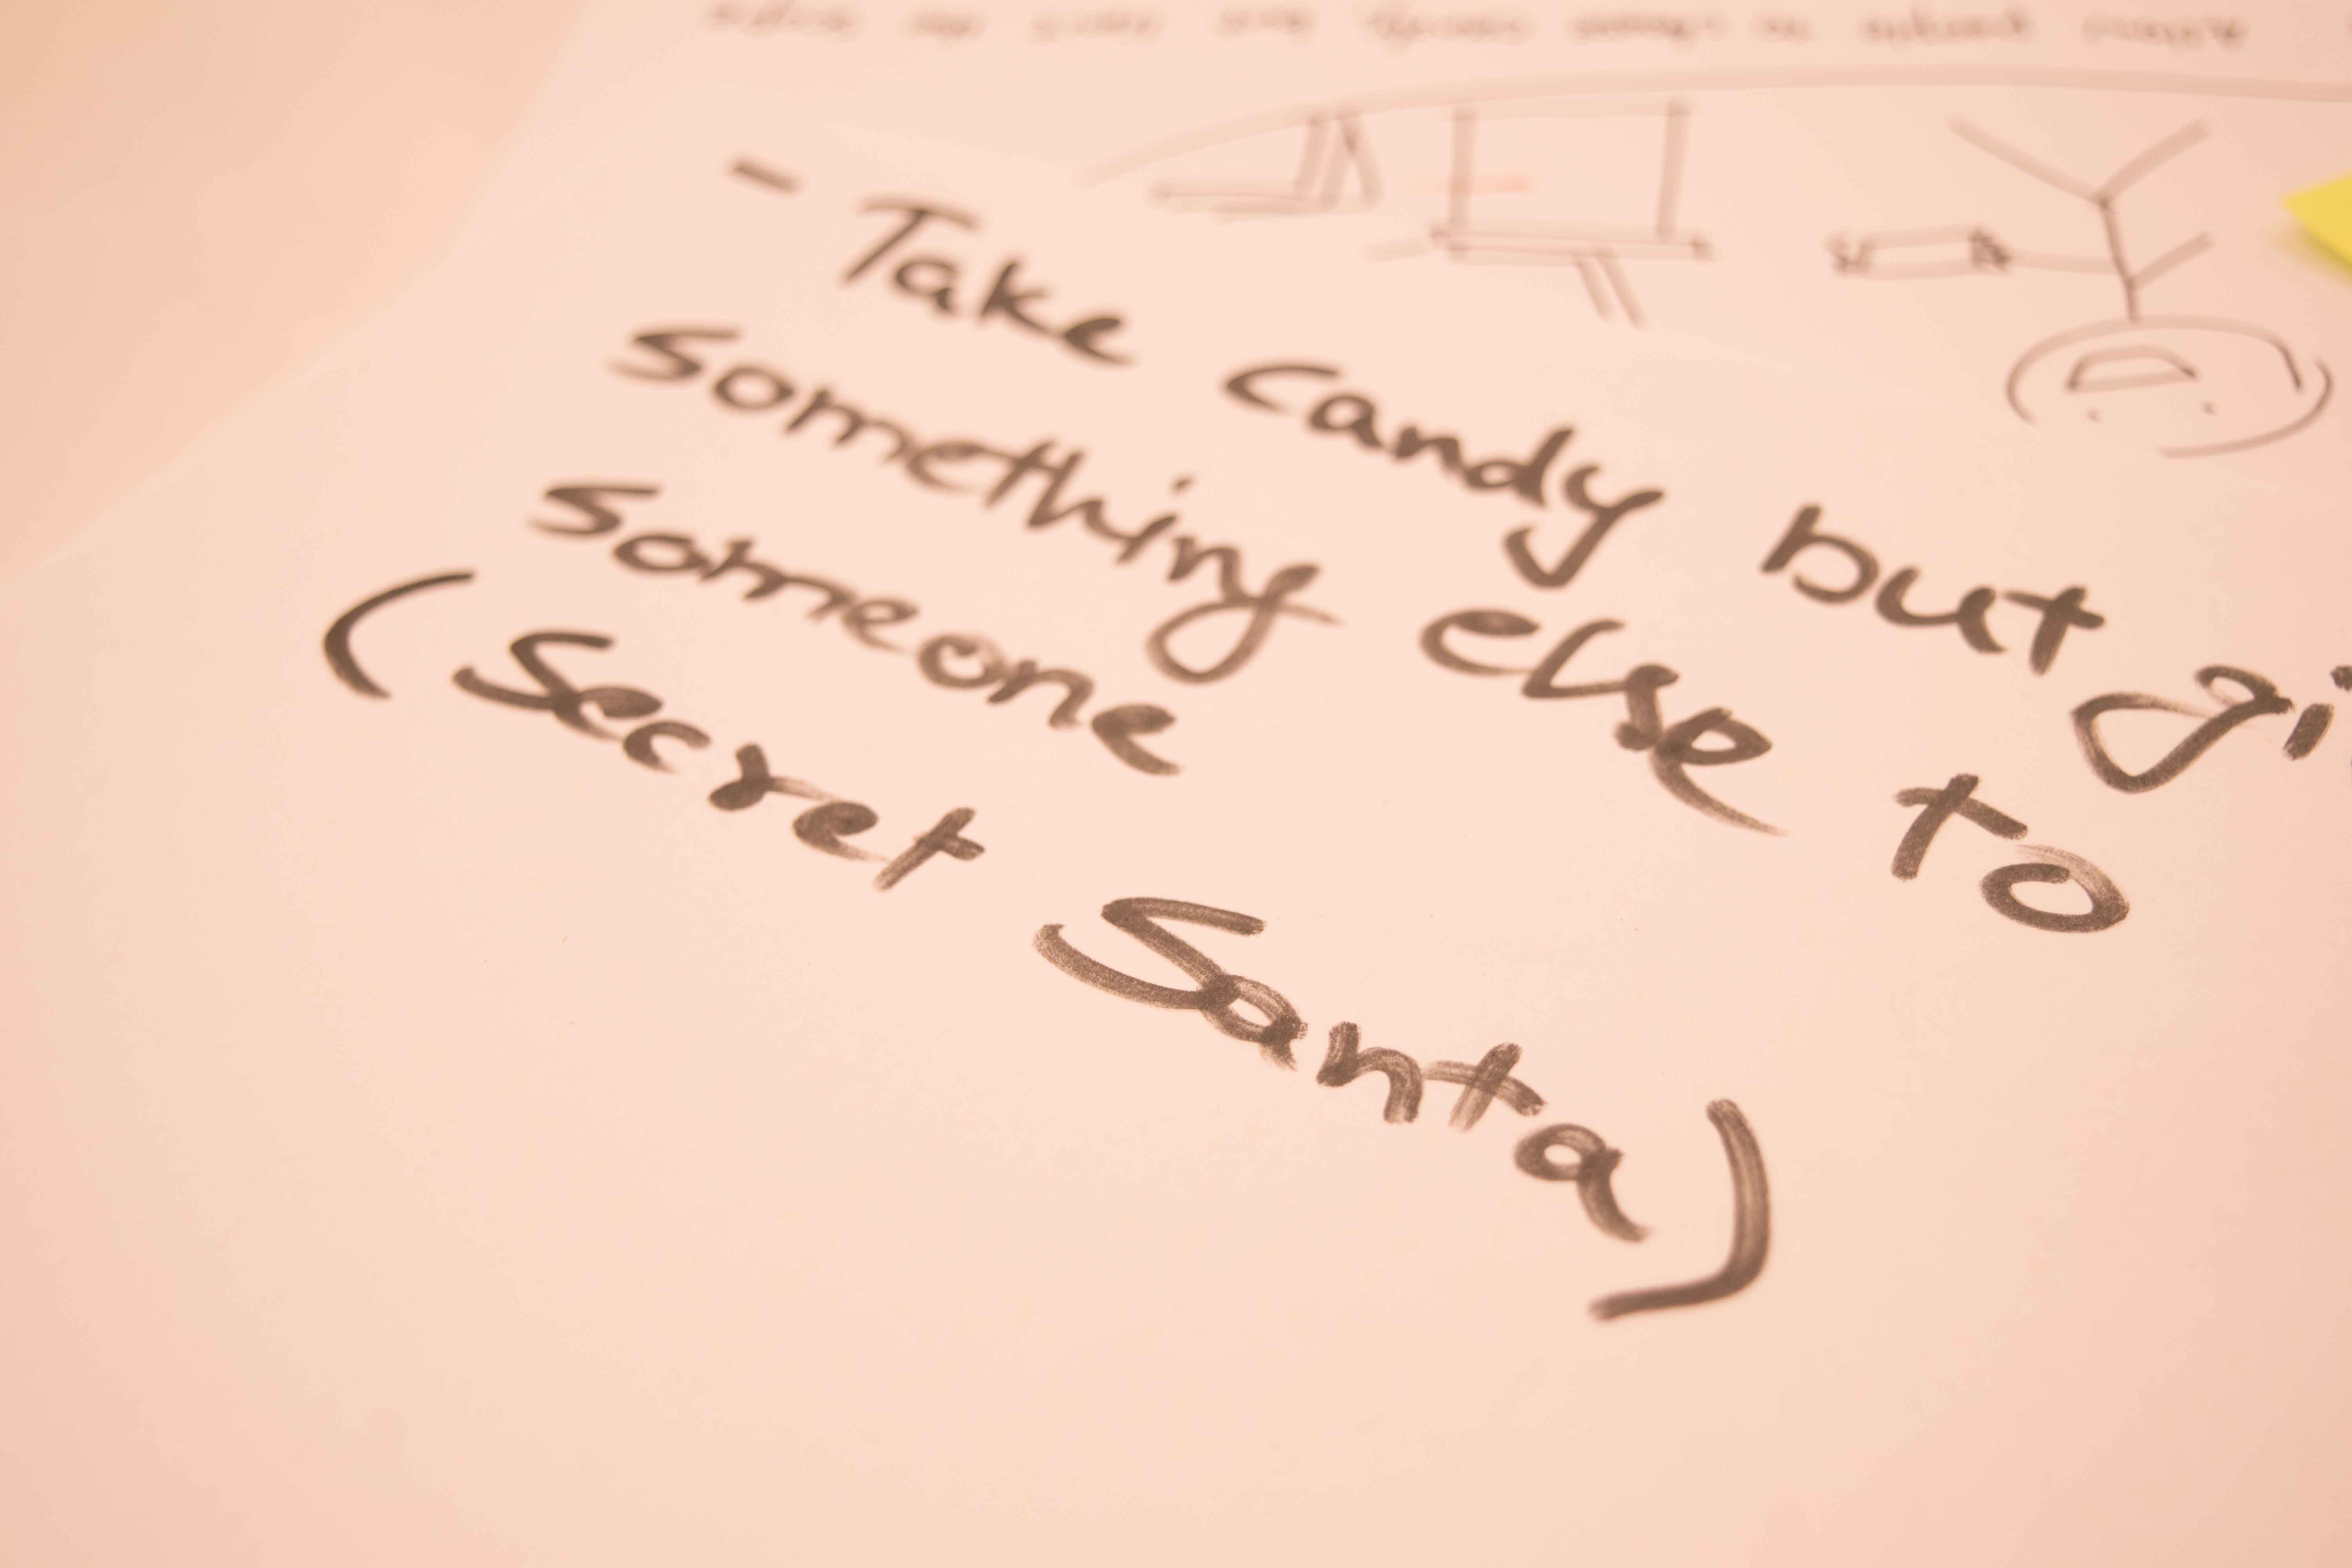 - Take candy but gi
something else to
someone
(Secret Santa)